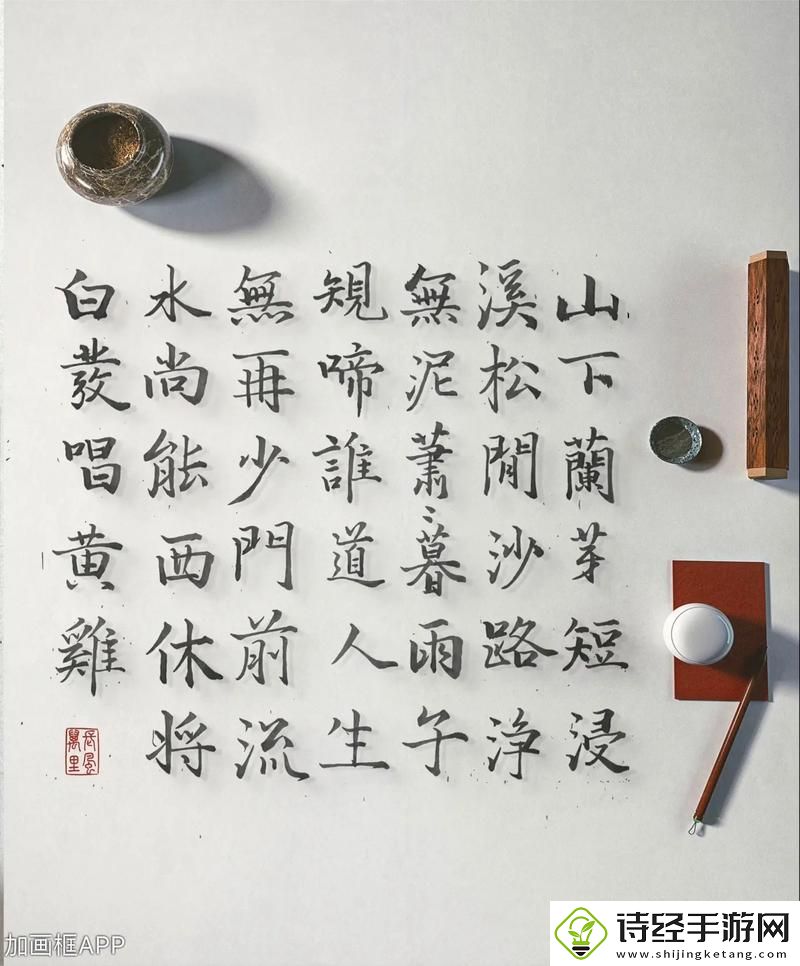 山下蘭芽短浸
溪松閒沙路淨
無泥蕭〻暮雨子
䂓啼誰道人生
無再少門前流
水尚能西休將
白發唱黄雞
長風萬里
加画框APP
诗经手游网
www.shijingketang.com